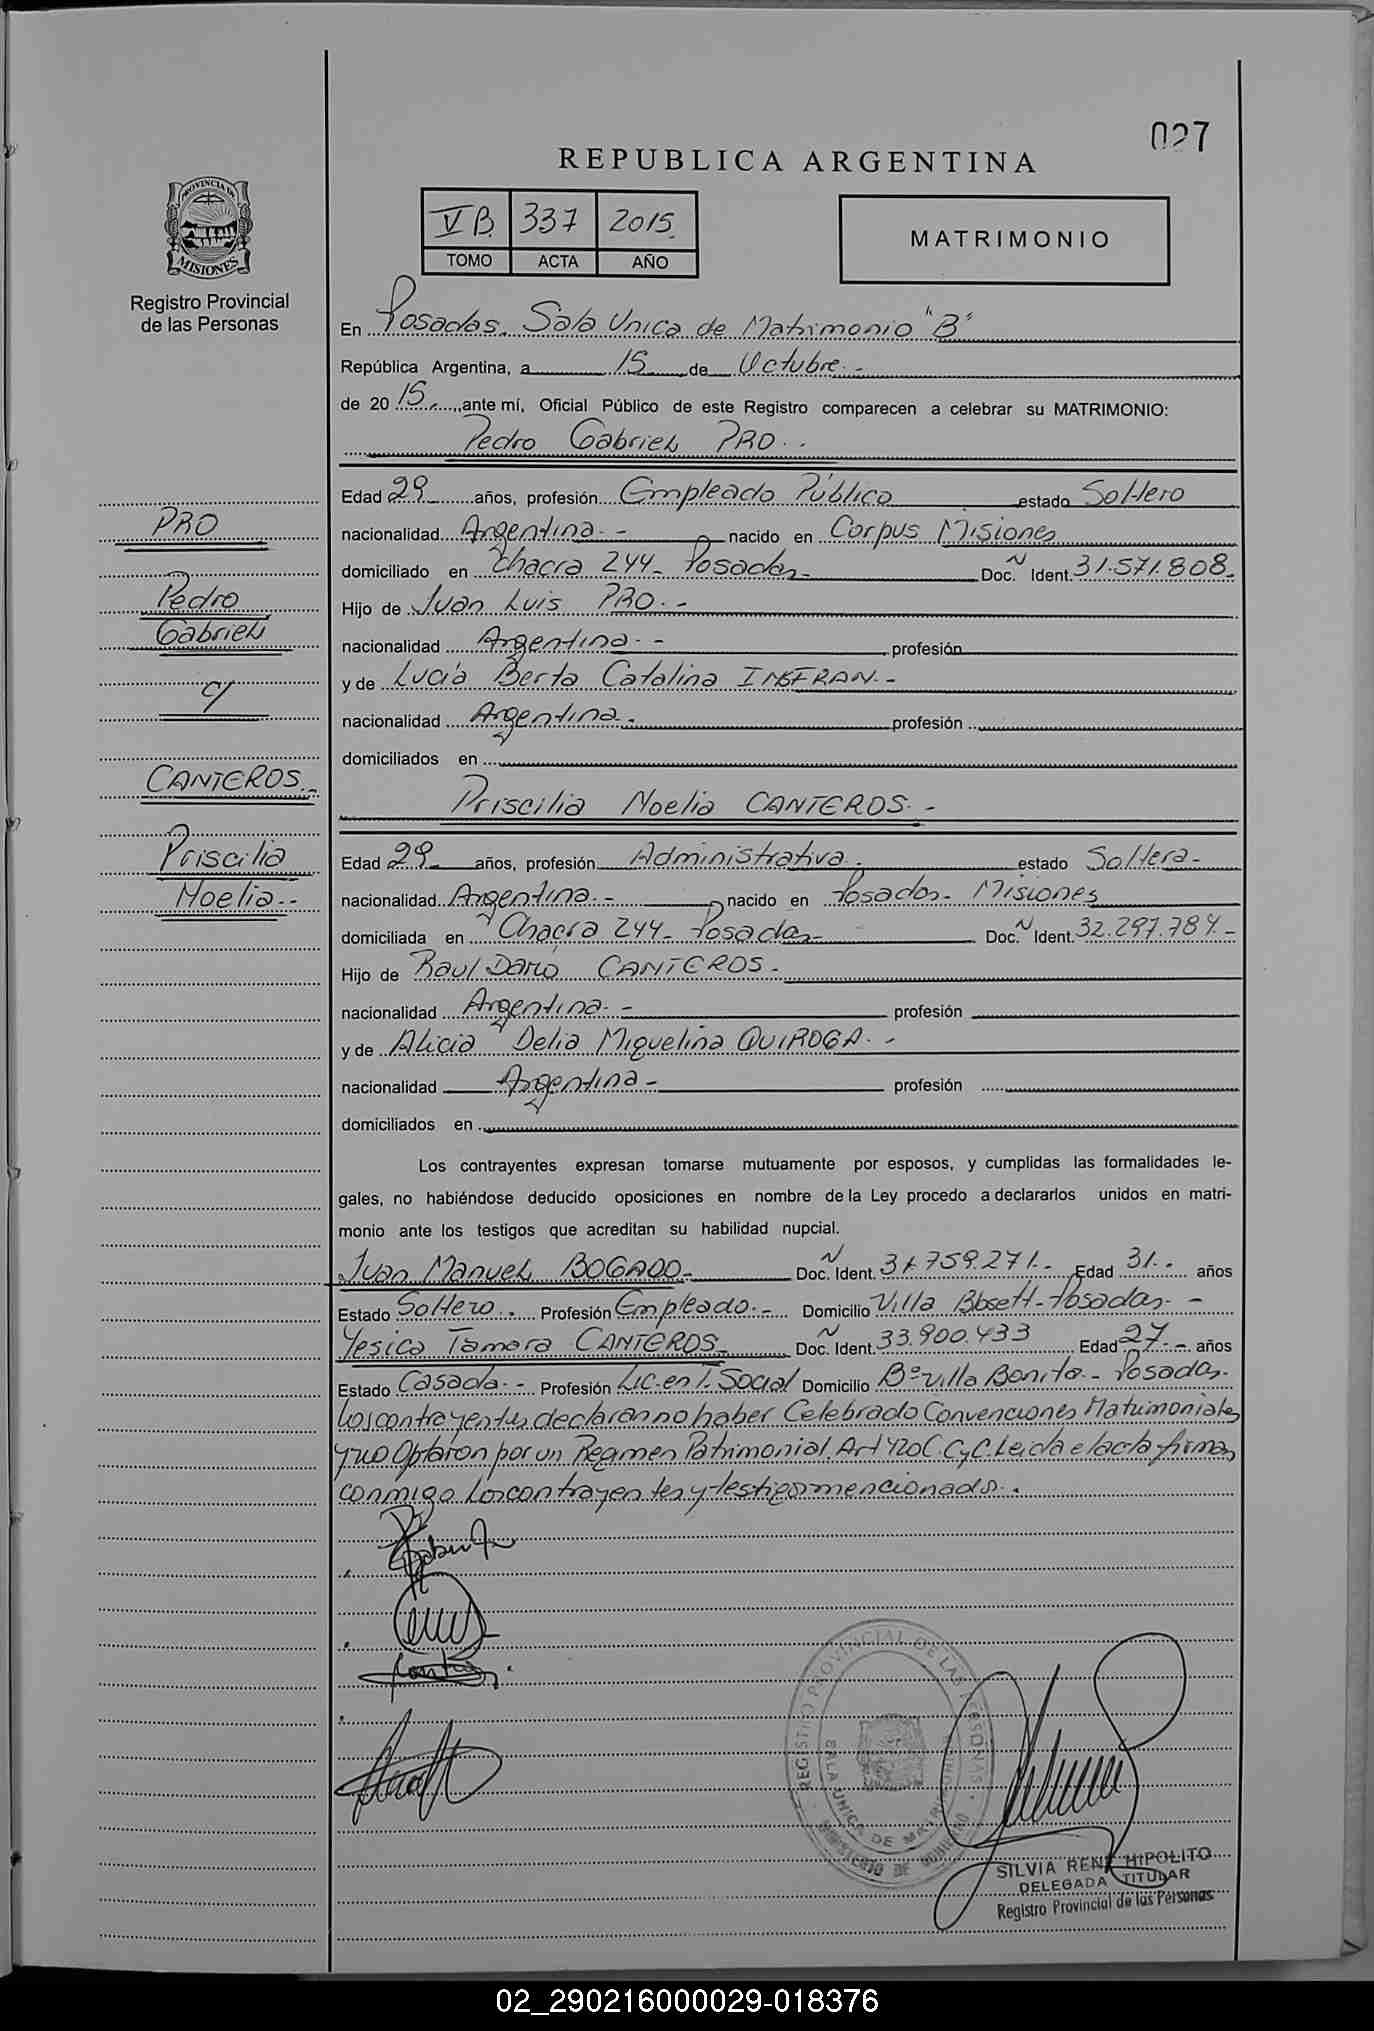 027
REPUBLICA ARGENTINA
PROVINCIA DE
MISIONES
Registro Provincial
de las Personas
V B. 337 2015.
TOMO ACTA AÑO
MATRIMONIO
En Posadas. Sala Unica de Matrimonio "B"
República Argentina, a 15 de Octubre.-
de 2015., ante mí, Oficial Público de este Registro comparecen a celebrar su MATRIMONIO:
Pedro Gabriel PRO.-
Edad 29 años, profesión Empleado Público estado Soltero
nacionalidad Argentina.- nacido en Corpus Misiones
domiciliado en Chacra 244- Posadas- Doc. Ident. 31.571.808.
Hijo de Juan Luis PRO.-
nacionalidad Argentina.- profesión
y de Lucía Berta Catalina INSFRAN.-
nacionalidad Argentina. profesión
domiciliados en
PRO
Pedro
Gabriel
c/
CANTEROS.-
Priscilia
Noelia.-
Priscilia Noelia CANTEROS.-
Edad 29 años, profesión Administrativa. estado Soltera-
nacionalidad Argentina.- nacido en Posadas- Misiones
domiciliada en Chacra 244- Posadas- Doc. Ident. 32.297.784.-
Hijo de Raul Darío CANTEROS.
nacionalidad Argentina.- profesión
y de Alicia Delia Miguelina QUIROGA.-
nacionalidad Argentina- profesión
domiciliados en
Los contrayentes expresan tomarse mutuamente por esposos, y cumplidas las formalidades le-
gales, no habiéndose deducido oposiciones en nombre de la Ley procedo a declararlos unidos en matri-
monio ante los testigos que acreditan su habilidad nupcial.
Juan Manuel BOGADO- Doc. Ident. Edad 31.. años
Estado Soltero.. Profesión Empleado.- Domicilio Villa Posadas.-
Yesica Tamara CANTEROS- Doc. Ident. 33.900.433 Edad 27.- años
Estado Casada.- Profesión Lic. en T. Social Domicilio B° Villa Bonita- Posadas-
Los contrayentes declaran no haber Celebrado Convenciones Matrimoniales
y no Optaron por un Regimen Patrimonial. Art 420 C. C y C. Leida el acta firman
conmigo los contrayentes y testigos mencionados.
REGISTRO PROVINCIAL DE LAS PERSONAS
SALA UNICA DE MATRIMONIO
MINISTERIO DE GOBIERNO
SILVIA RENE HIPOLITO
DELEGADA TITULAR
Registro Provincial de las Personas
02_290216000029-018376